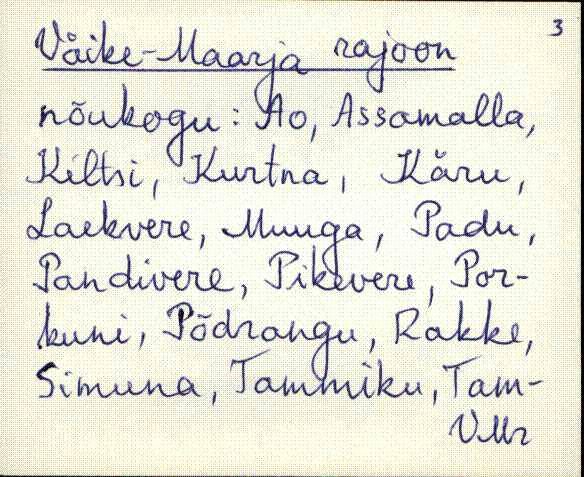 3
Väike-Maarja rajoon
nõukogu: Ao, Assamalla,
Kiltsi, Kurtna, Käru,
Laekvere, Muuga, Padu,
Pandivere, Pikevere, Por-
kuni, Põdrangu, Rakke,
Simuna, Tammiku, Tam-
VMr